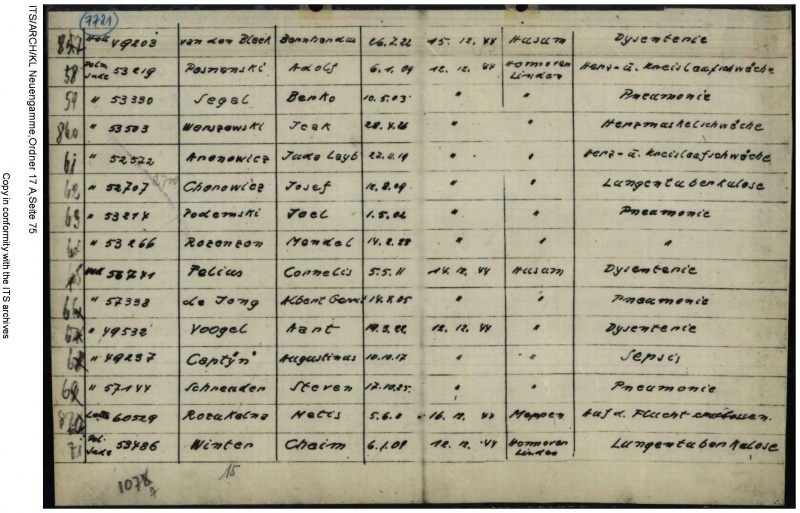 7721
857 Holl 49203 van den Bleek Bernhardus 26.7.22 15. 12. 44 Husum Dysenterie
58 Poln. Jude 53219 Posnanski Adolf 6.1.09 12. 12. 44 Hannover Linden Herz- u. Kreislaufschwäche
59 " 53390 Segal Benko 10.5.03 " " Pneumonie
860 " 53503 Warszawski Icek 28.4.26 " " Herzmuskelschwäche
61 " 52522 Aronowicz Juda Layb 22.11.19 " " Herz- u. Kreislaufschwäche
62 " 52707 Chonowicz Josef 12.8.09 " " Lungentuberkulose
63 " 53214 Podemski Joel 1.5.02 " " Pneumonie
64 " 53266 Rozenzon Mendel 14.2.28 " " "
65 Holl 56741 Palius Cornelis 5.5.11 14. 12. 44 Husum Dysenterie
66 " 57338 de Jong Albert Gerrit 14.4.05 " " Pneumonie
67 " 49532 Voogel Aart 19.3.22 12. 12. 44 " Dysenterie
68 " 49237 Captÿn Augustinus 10.10.17 " " Sepsis
69 " 57144 Schreuder Steven 17.10.25 " " Pneumonie
870 Lette 60529 Rozukalns Metis 5.6.0 16. 12. 44 Meppen Auf d. Flucht erschossen.
71 Pol. Jude 53486 Winter Chaim 6.1.09 12. 12. 44 Hannover Linden Lungentuberkulose
1078
15
ITS/ARCH/KL Neuengamme,Ordner 17 A,Seite 75
Copy in conformity with the ITS archives